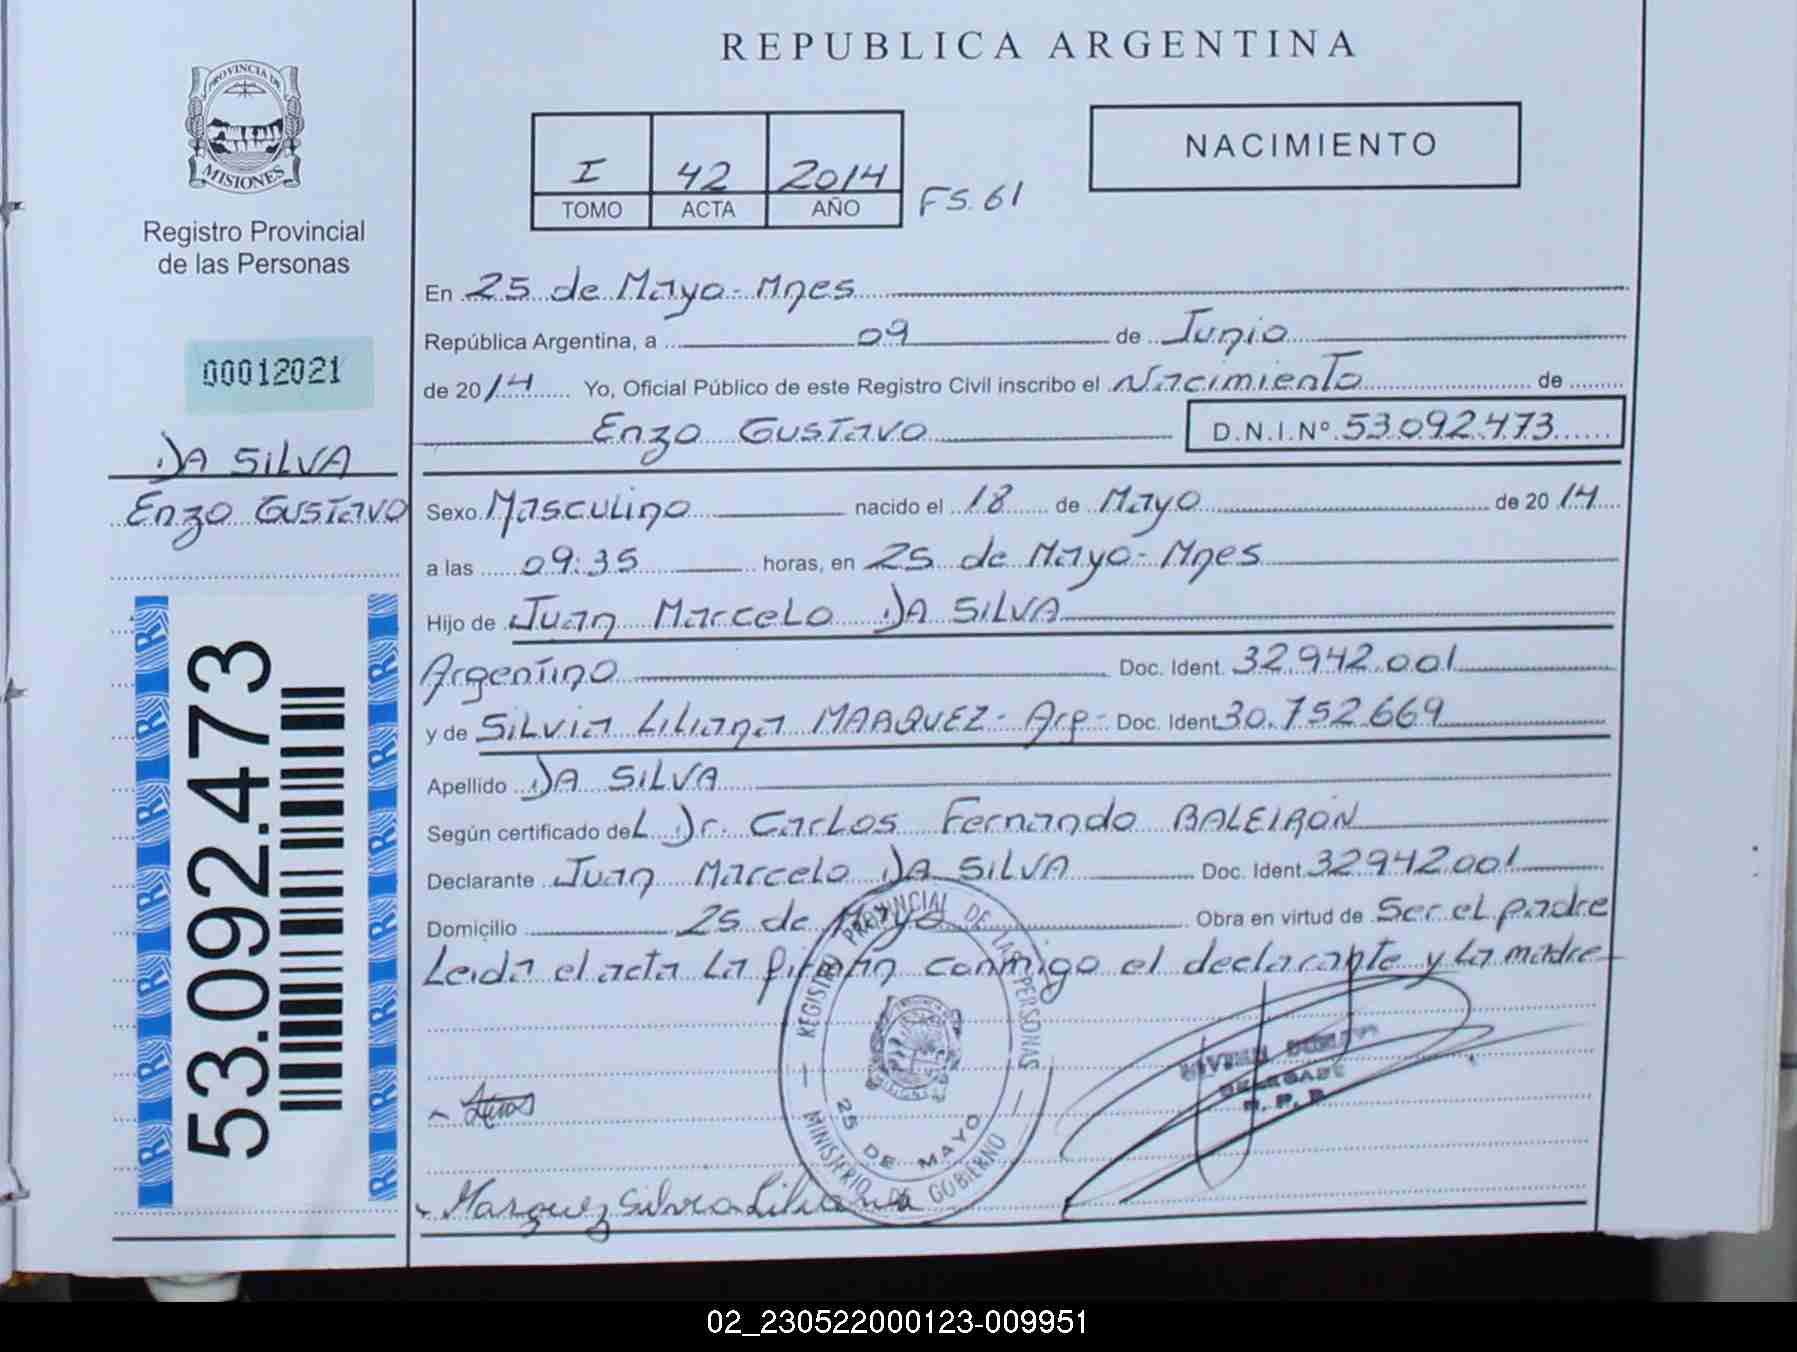 REPUBLICA ARGENTINA
PROVINCIA DE
MISIONES
Registro Provincial
de las Personas
00012021
DA SILVA
Enzo Gustavo
53.092.473
I 42 2014 FS. 61
TOMO ACTA AÑO
NACIMIENTO
En 25 de Mayo - Mnes
República Argentina, a 09 de Junio
de 2014 Yo, Oficial Público de este Registro Civil inscribo el Nacimiento de
Enzo Gustavo D.N.I.Nº 53.092.473
Sexo Masculino nacido el 18 de Mayo de 2014
a las 09:35 horas, en 25 de Mayo - Mnes
Hijo de Juan Marcelo DA SILVA
Argentino Doc. Ident. 32.942.001
y de Silvia Liliana MARQUEZ - Arg - Doc. Ident 30.752.669
Apellido DA SILVA
Según certificado del Dr. Carlos Fernando BALEIRON
Declarante Juan Marcelo DA SILVA Doc. Ident. 32942.001
Domicilio 25 de Mayo Obra en virtud de Ser el padre
Leida el acta la firman conmigo el declarante y la madre
REGISTRO PROVINCIAL DE LAS PERSONAS
25 DE MAYO
MINISTERIO DE GOBIERNO
R. P. P.
Marquez Silvia Liliana
02_230522000123-009951